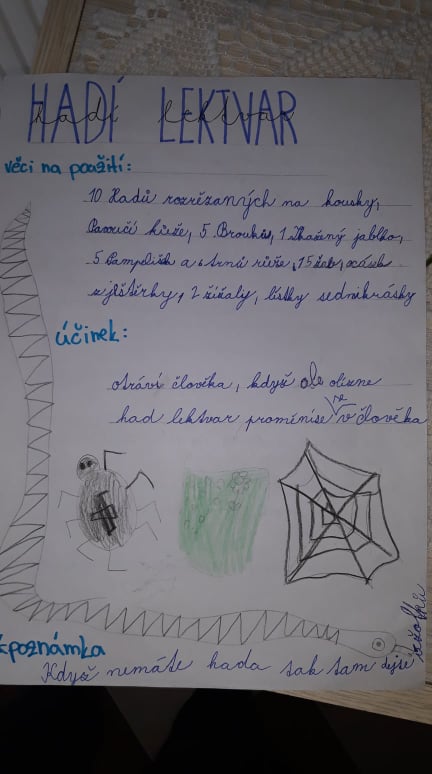 HADÍ LEKTVAR
hadí lektvar
věci na použití:
10 Hadů rozřezaných na kousky,
Pavoučí kůže, 5 Brouků, 1 Zkažený jablko,
5 Pampelišek a trnů růže, 15 žab, ocásek
z ještěrky, 2 žížaly, lístky sedmikrásky
účinek:
otráví člověka, když ale olizne
had lektvar proměníse ne v člověka
poznámka
Když nemáte hada tak tam dejte